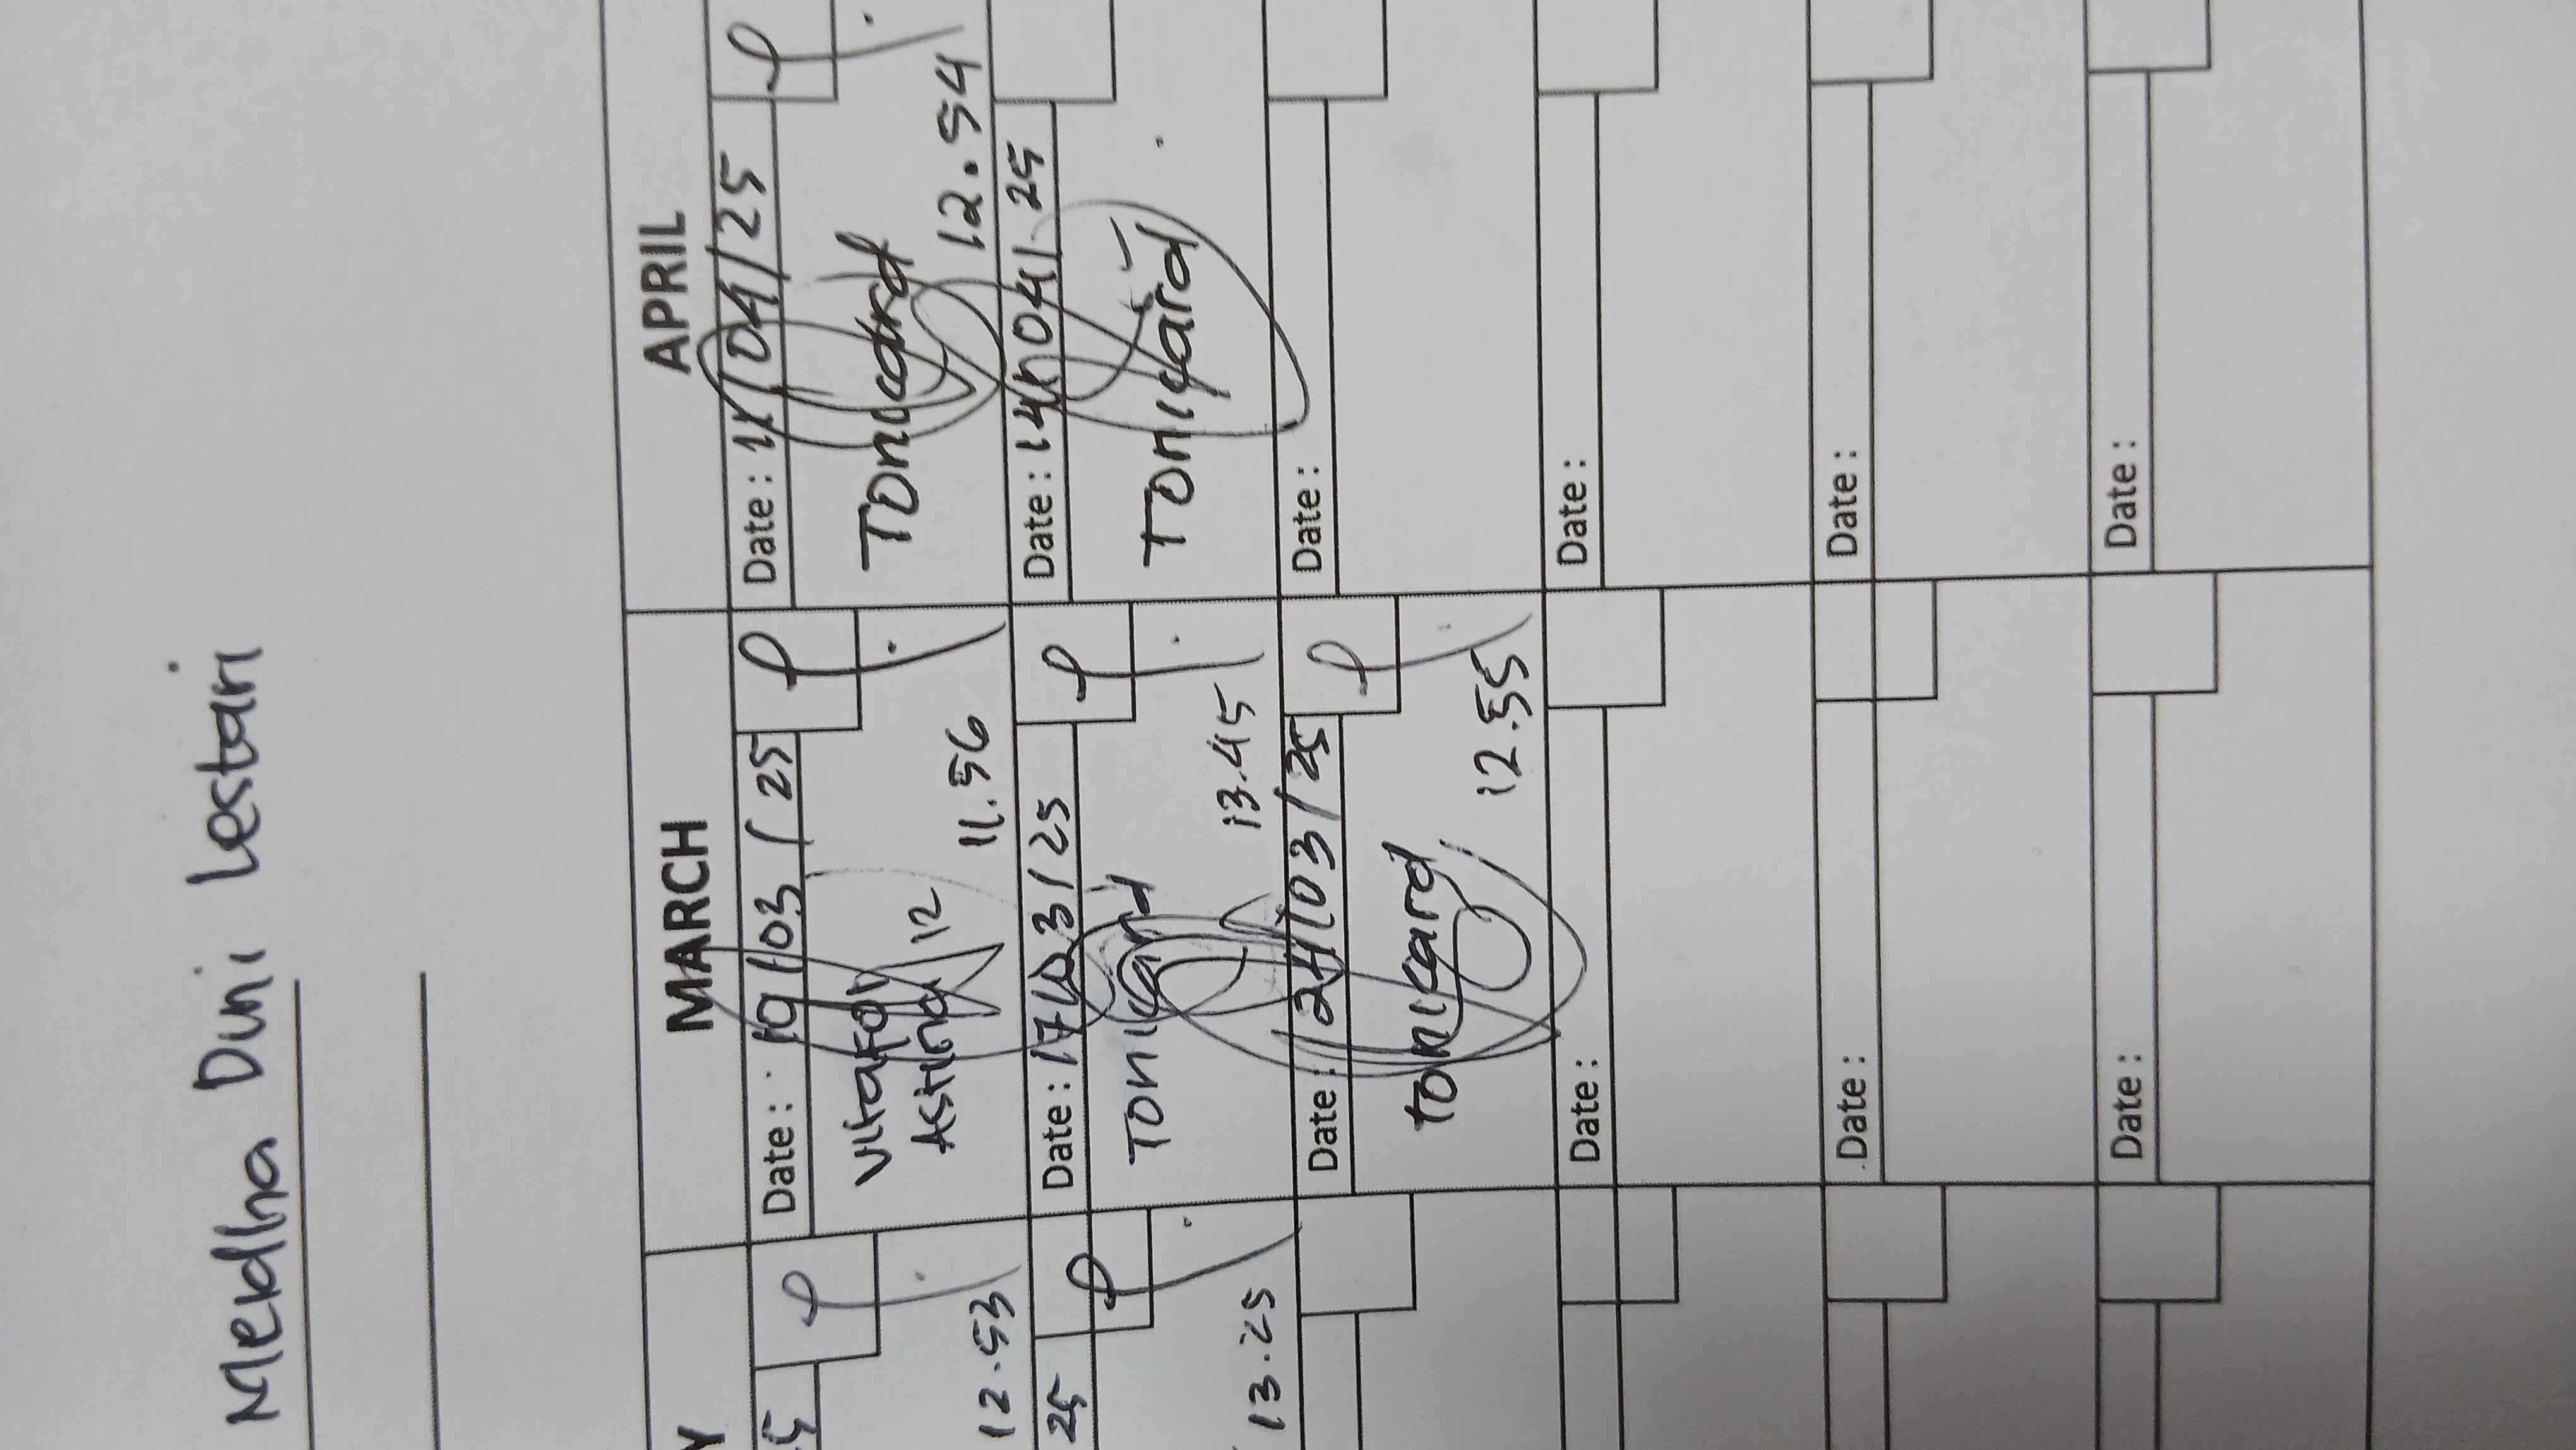 Meidha Dwi Lestari
MARCH
APRIL
12.53
25
13.25
Date: 10/03/25
Vitafol
Astina 12
11.56
Date: 17/03/25
Tonicard
13.45
Date: 24/03/25
tonicard
12.55
Date:
Date:
Date:
Date: 11/04/25
Tonicard
12.54
Date: 14/04/25
Tonicard
Date:
Date:
Date:
Date: